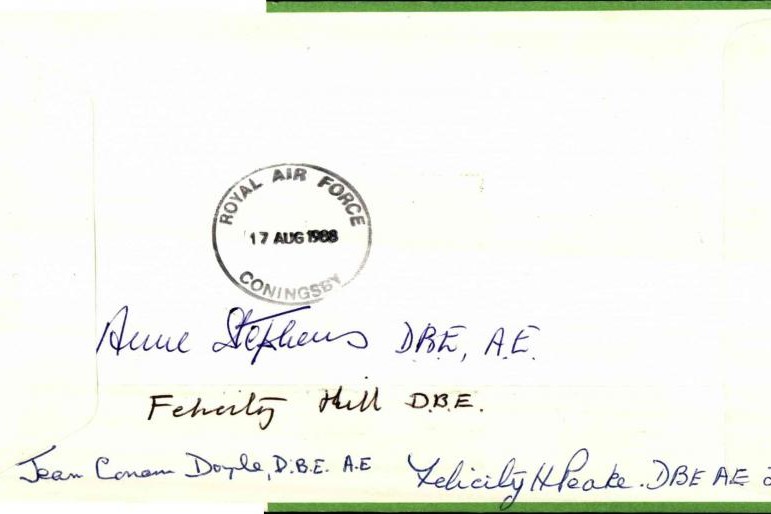 ROYAL AIR FORCE
17 AUG 1988
CONINGSBY
Anne Stephens DBE, A.E.
Felicity Hill D.B.E.
Jean Conan Doyle, D.B.E. A.E Felicity H Peake. DBE AE